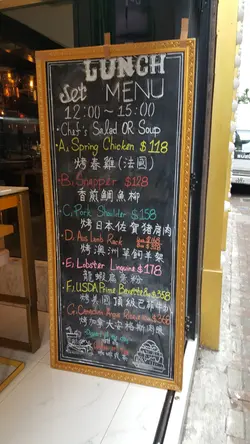 LUNCH
Set MENU
12:00 ~ 15:00
• Chef's Salad OR Soup
• A: Spring Chicken $118
烤春雞(法國)
• B: Snapper $128
香煎鯛魚柳
• C: Pork Shoulder $158
烤日本佐賀豬肩肉
• D: Aus Lamb Rack
烤澳洲羊鞍羊架
• E: Lobster Linguine $178
龍蝦扁意粉
• F: USDA Prime $358
烤美國頂級
• G: Canadian Angus
烤加拿大安格斯肉